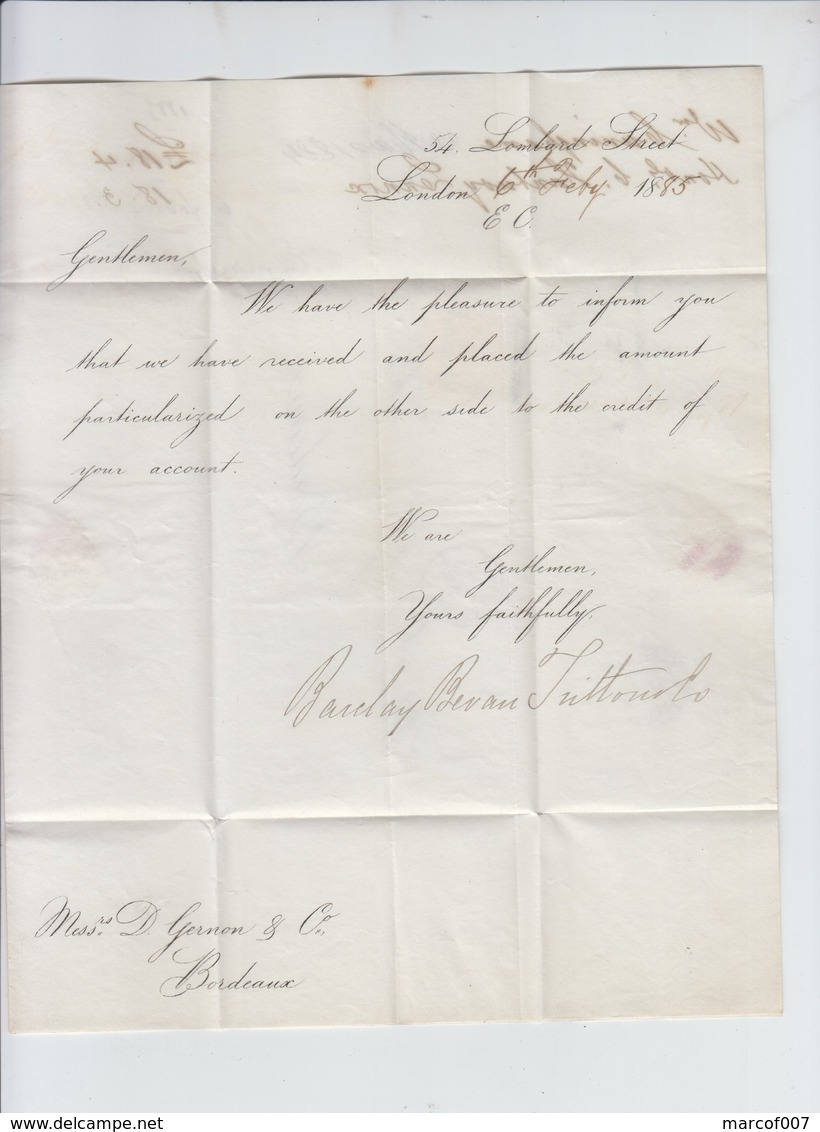 54. Lombard Street
London 6th Feby 1885
E C.
Gentlemen,
We have the pleasure to inform you
that we have received and placed the amount
particularized on the other side to the credit of
your account.
We are
Gentlemen,
Yours faithfully,
Barclay Bevan Tritton & Co
Messrs. D. Gernon & Co.,
Bordeaux
delcampe.net
marcof007